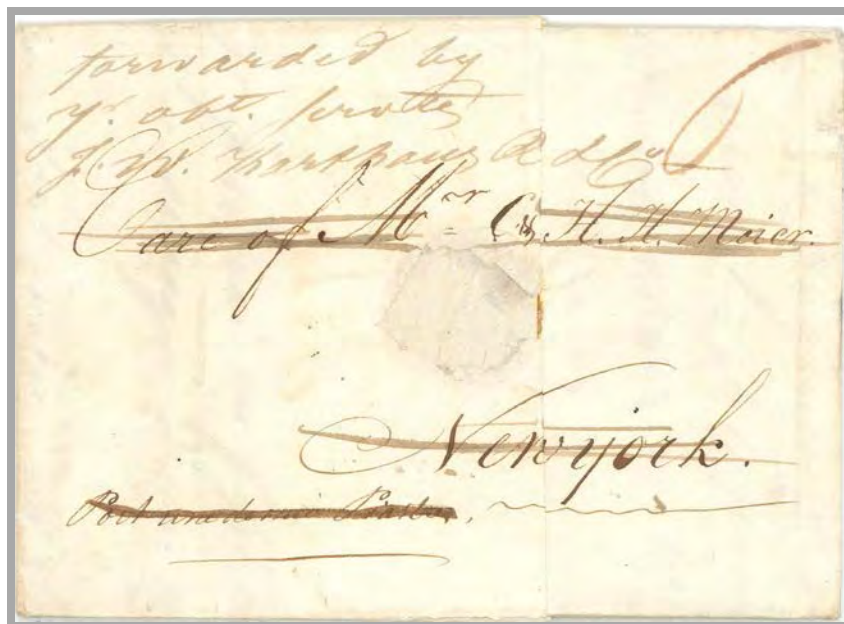 forwarded by
yr. obt. servts
J. W. Karthaus & Co
6
Care of Mr C. H. H. Meier.
Newyork.